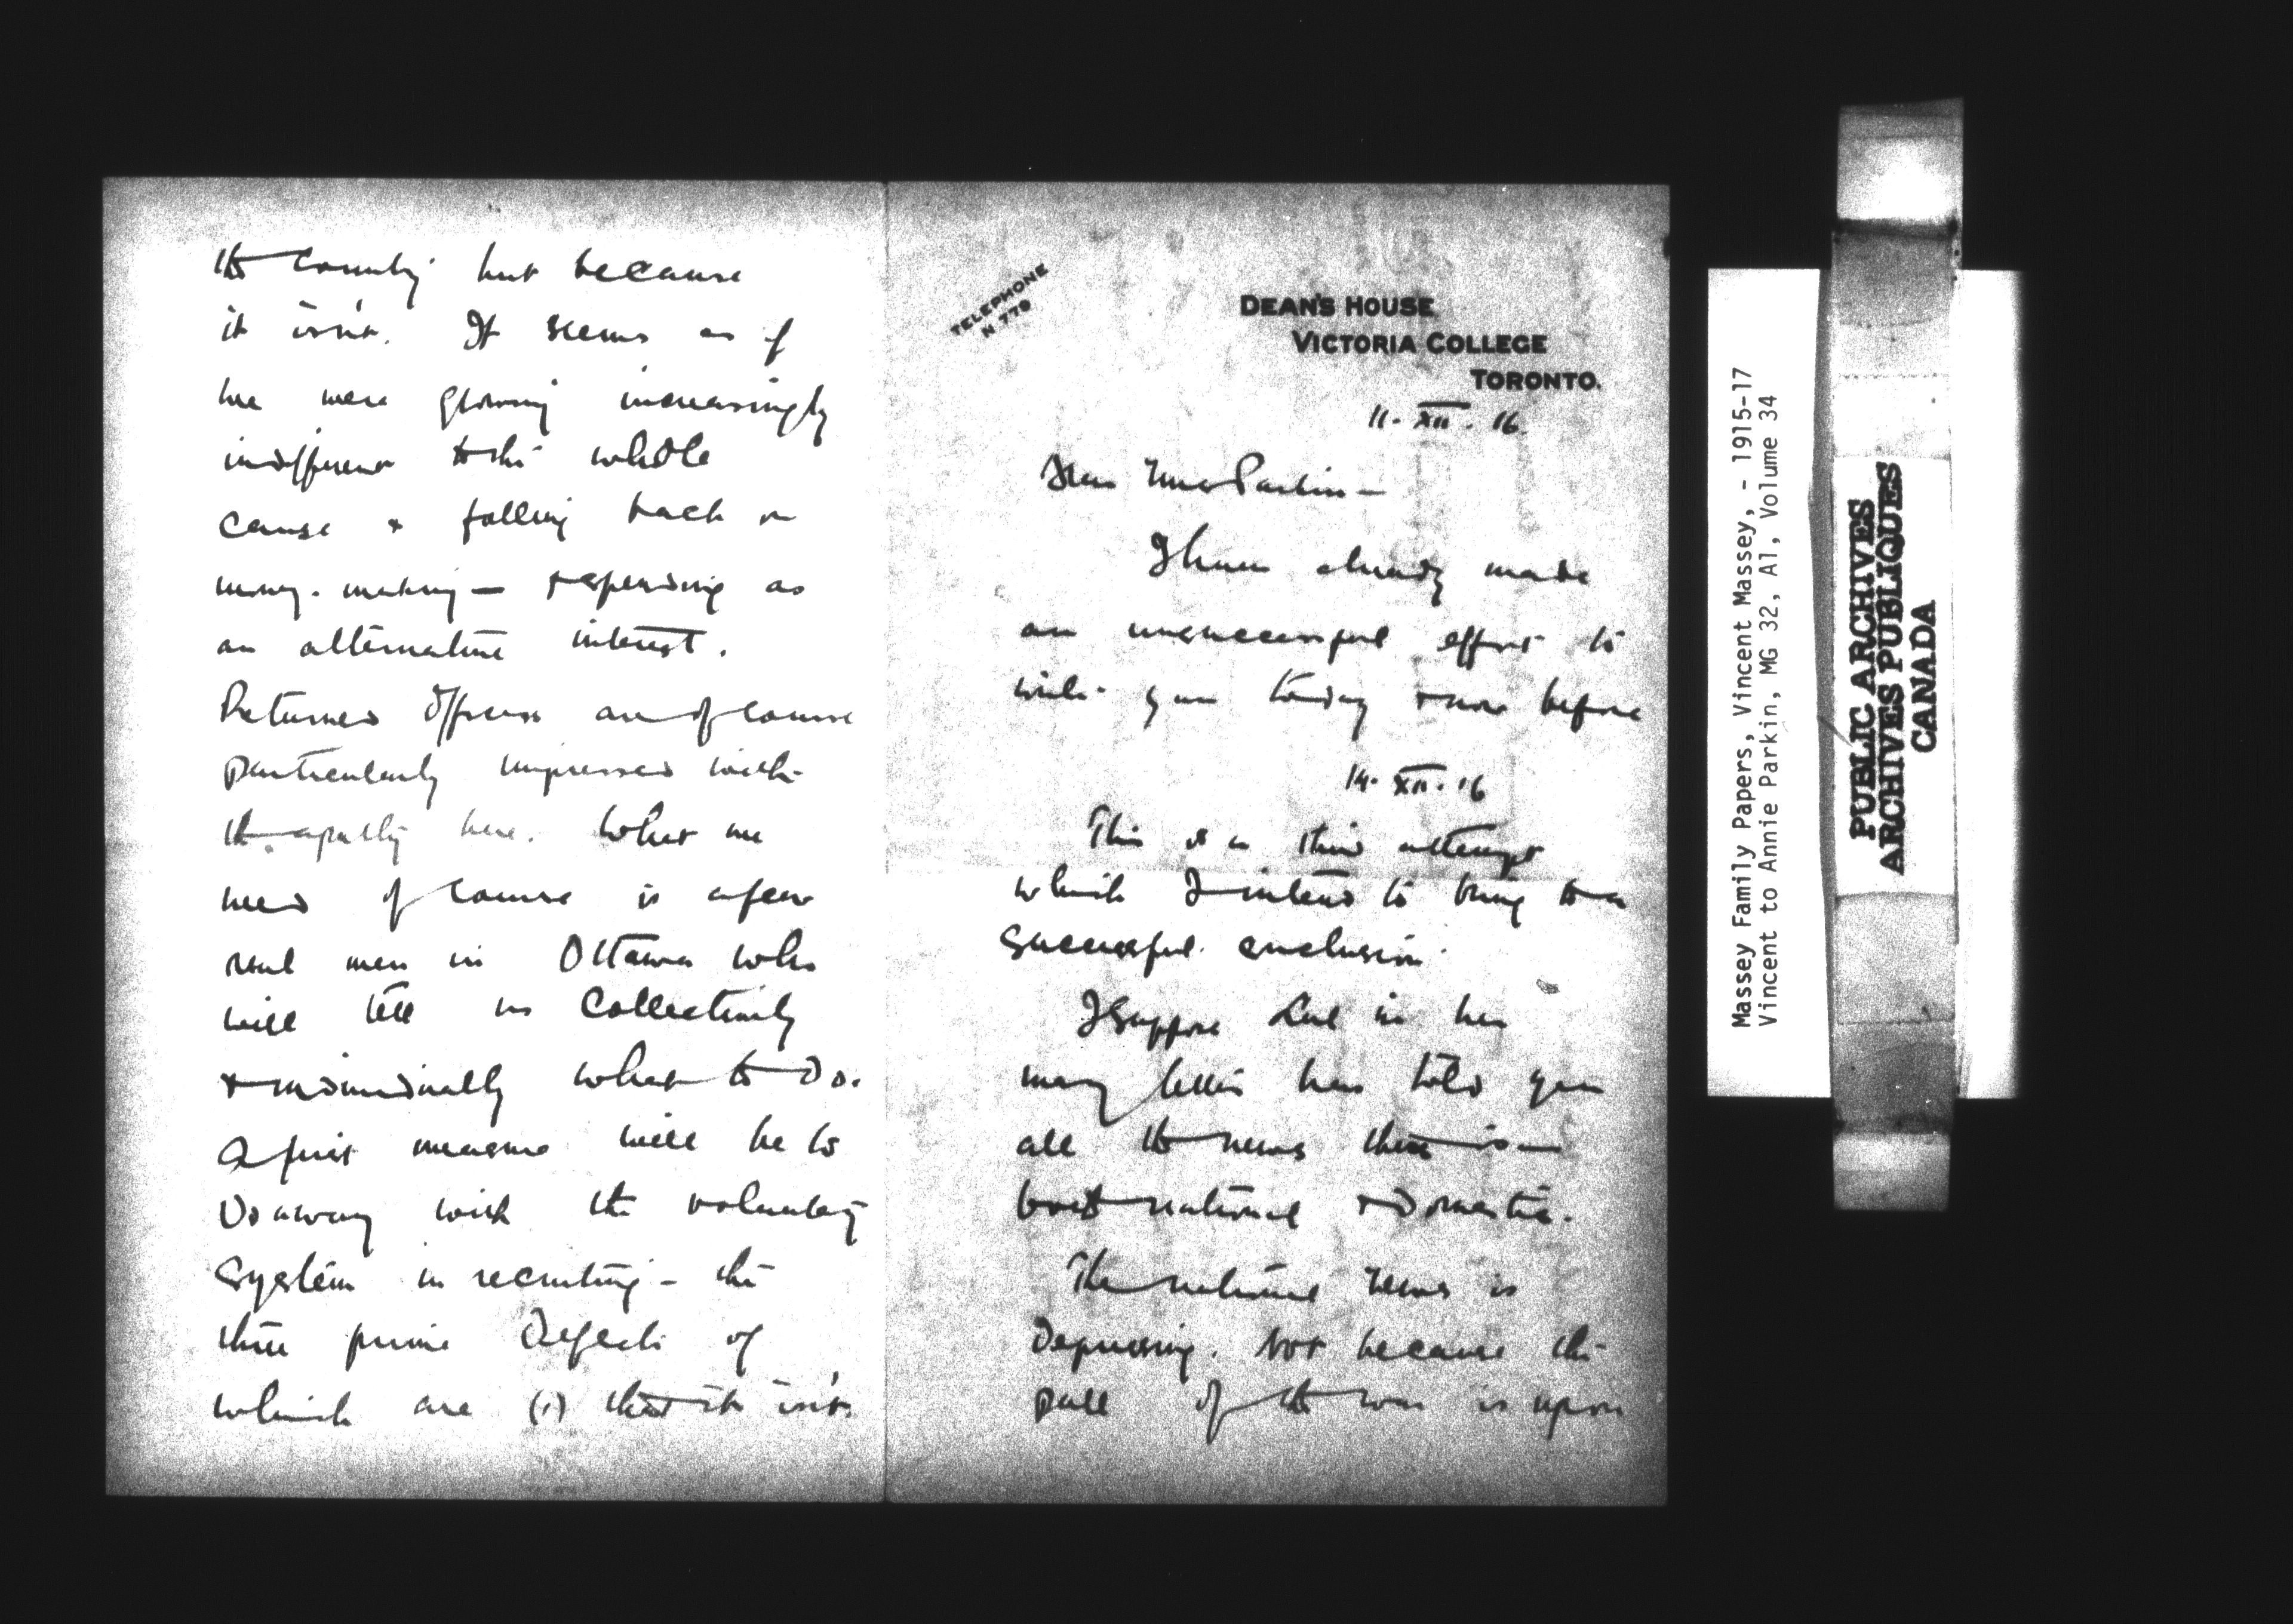 TELEPHONE
N 779
DEAN'S HOUSE
VICTORIA COLLEGE
TORONTO.
11. XII. 16.
Dear Mrs Parkin —
I have already made
an unsuccessful effort to
write you today & now before
14. XII. 16
This is a third attempt
which I intend to bring to a
successful conclusion.
I suppose Lal in her
many letters has told you
all the news there is —
both national & domestic.
The national news is
depressing. Not because the
pall of the war is upon
the country but because
it isn't. It seems as if
we were growing increasingly
indifferent to the whole
cause & falling back on
money-making — & spending as
an alternative interest.
Returned officers are of course
particularly impressed with
the apathy here. What we
need of course is a few
real men in Ottawa who
will tell us collectively
& individually what to do.
A first measure will be to
do away with the voluntary
system in recruiting — the
three prime defects of
which are (1) that it isn't
Massey Family Papers, Vincent Massey, - 1915-17
Vincent to Annie Parkin, MG 32, A1, Volume 34
PUBLIC ARCHIVES
ARCHIVES PUBLIQUES
CANADA